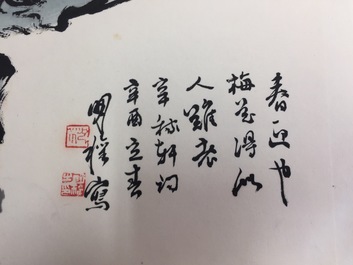 春近也
梅花得似
人難老
辛稼軒詞
辛酉立春
寫